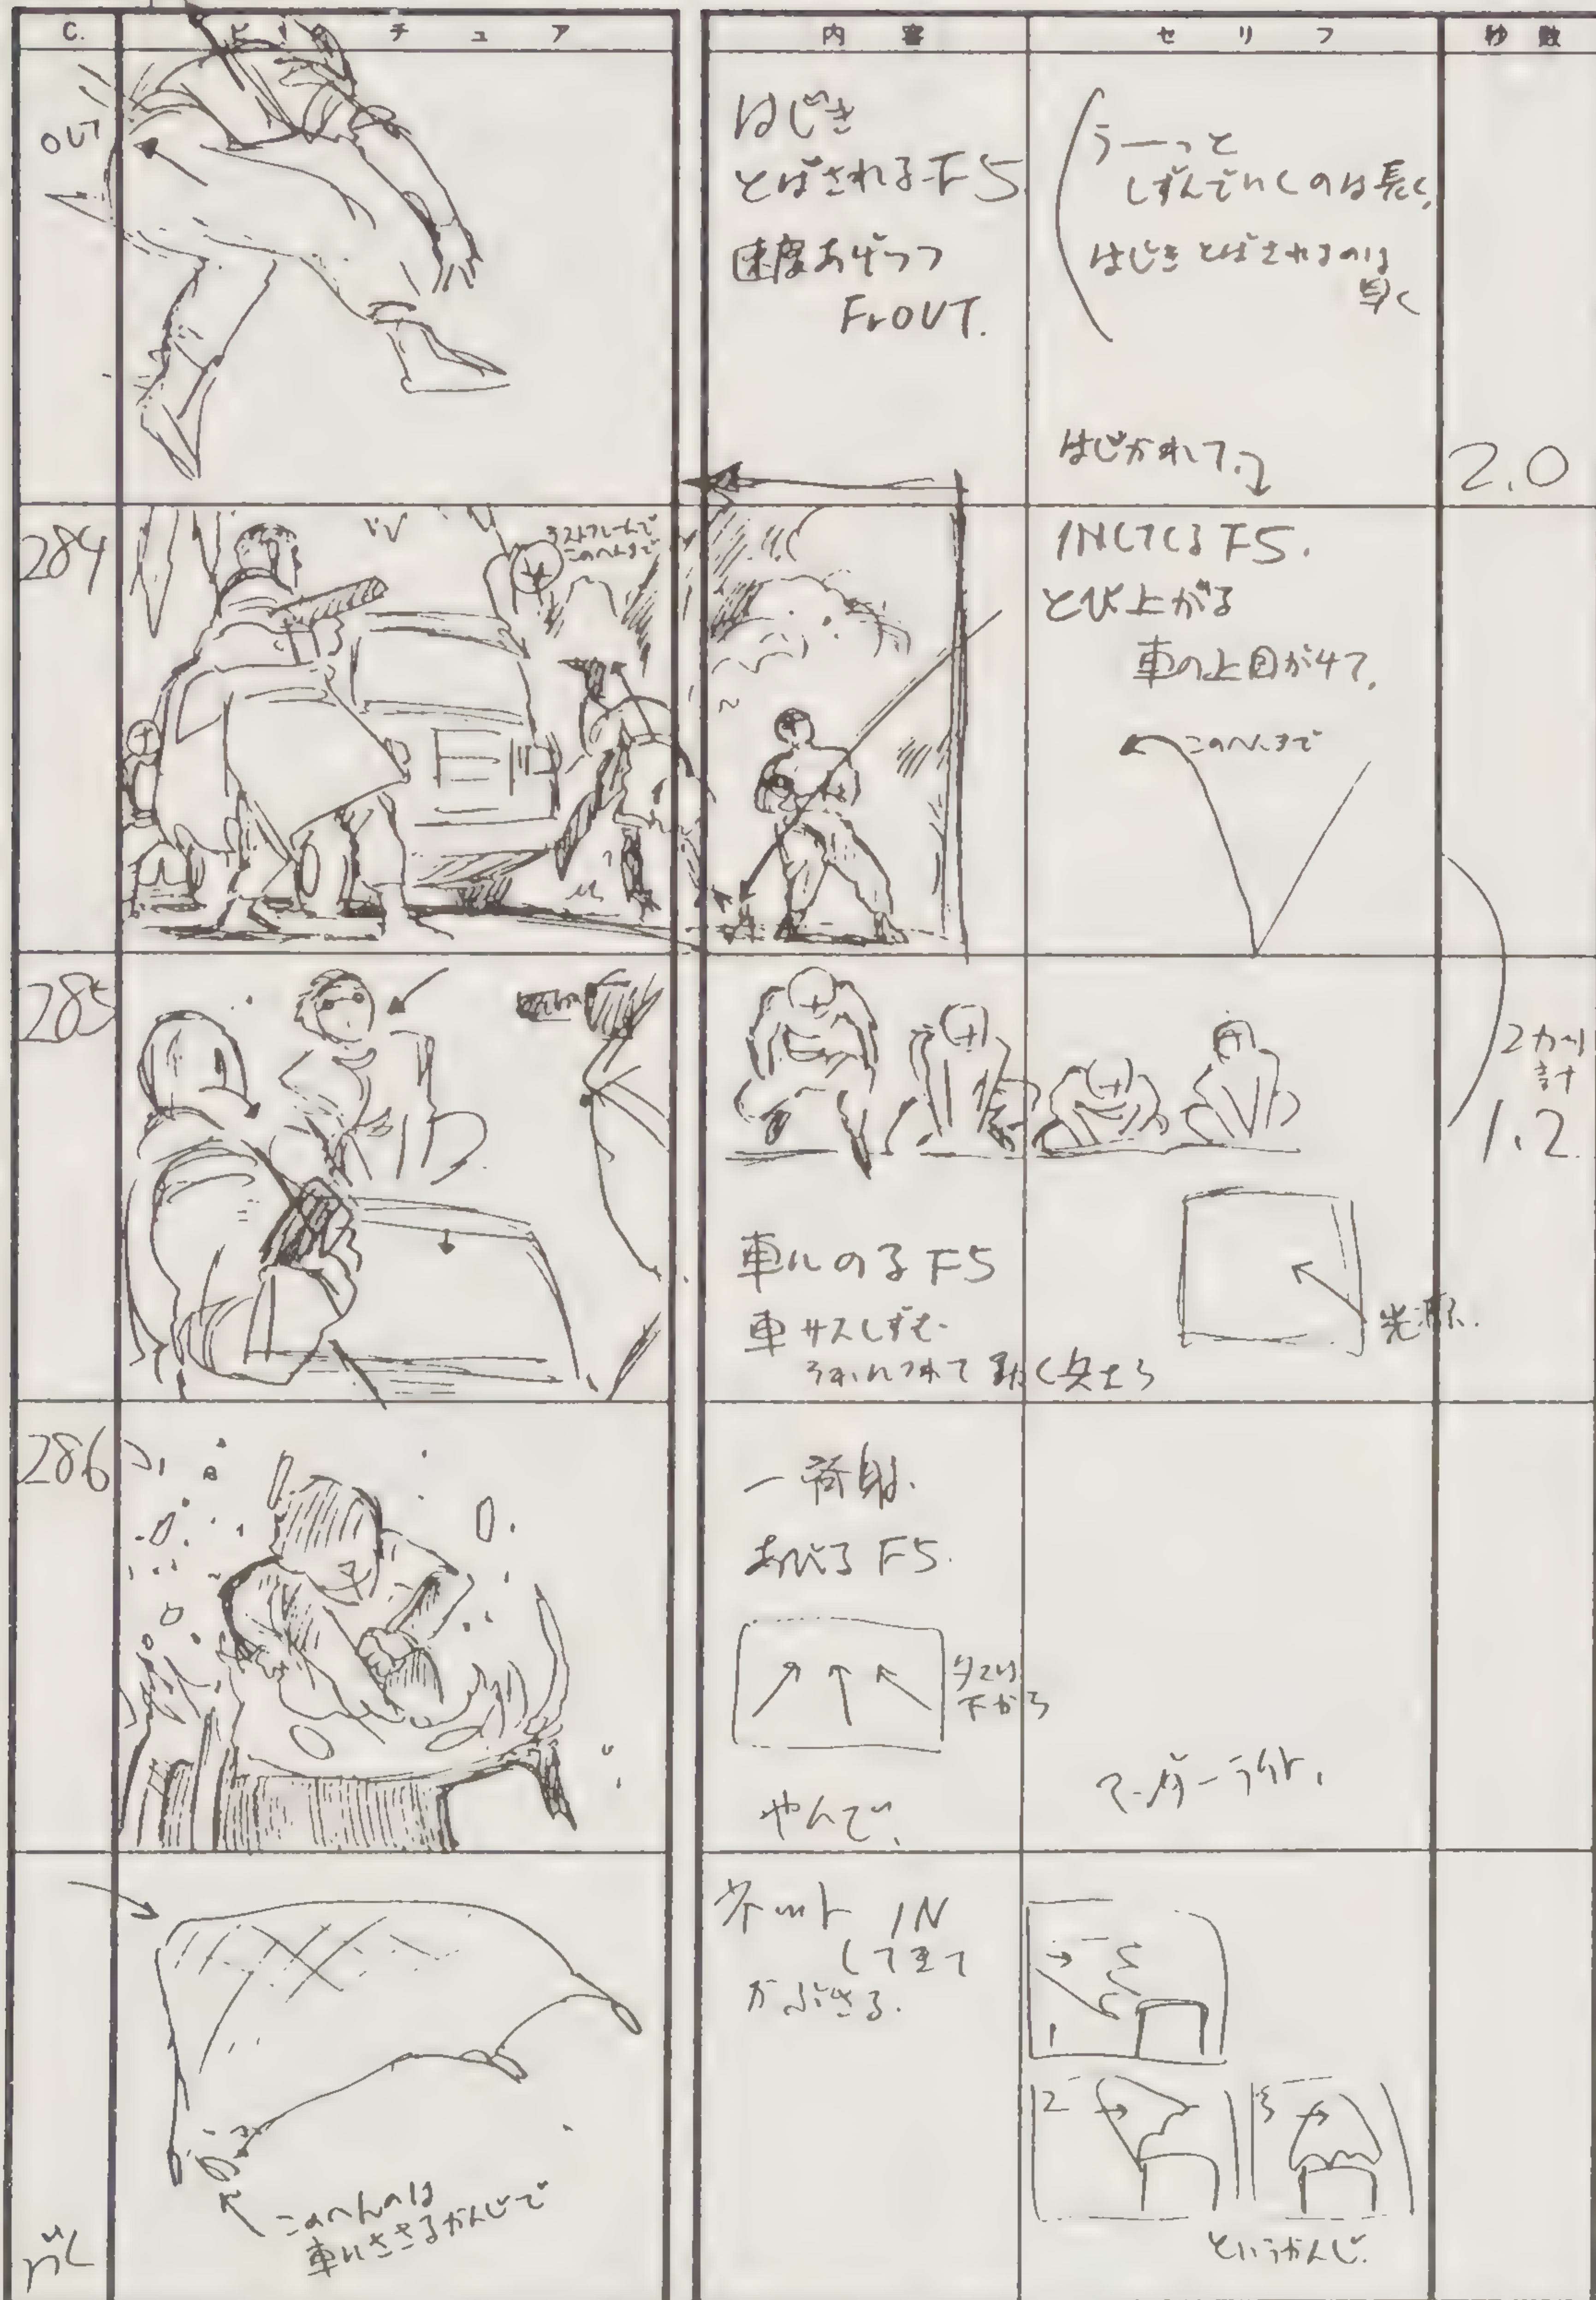 C.
ピクチュア
内容
セリフ
秒数
OUT
はじき
とばされるF5
速度あげつつ
FrOUT.
うーっと
しずんでいくのは長く.
はじきとばされるのは
早く
はじかれて、
2.0
284
ラストフレームで
このへんまで
INしてくるF5.
とび上がる
車の上目がけて.
このへんまで
285
車にのるF5
車サスしずむ.
それにつれて動く兵士ら
光源.
2カット
計
1.2
286
一斉射.
あびるF5.
タマは
下から
やんで、
マーカーライト.
ネット IN
して来て
かぶさる.
このへんのは
車にささるかんじで
1
2
3
というかんじ.
づく